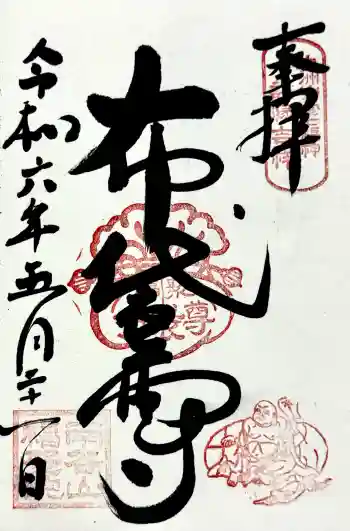 奉拝
布袋尊
令和六年五月二十一日